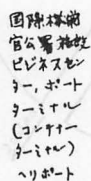 国際機関
官公署施設
ビジネスセン
ター,ポート
ターミナル
(コンテナー
ターミナル)
ヘリポート